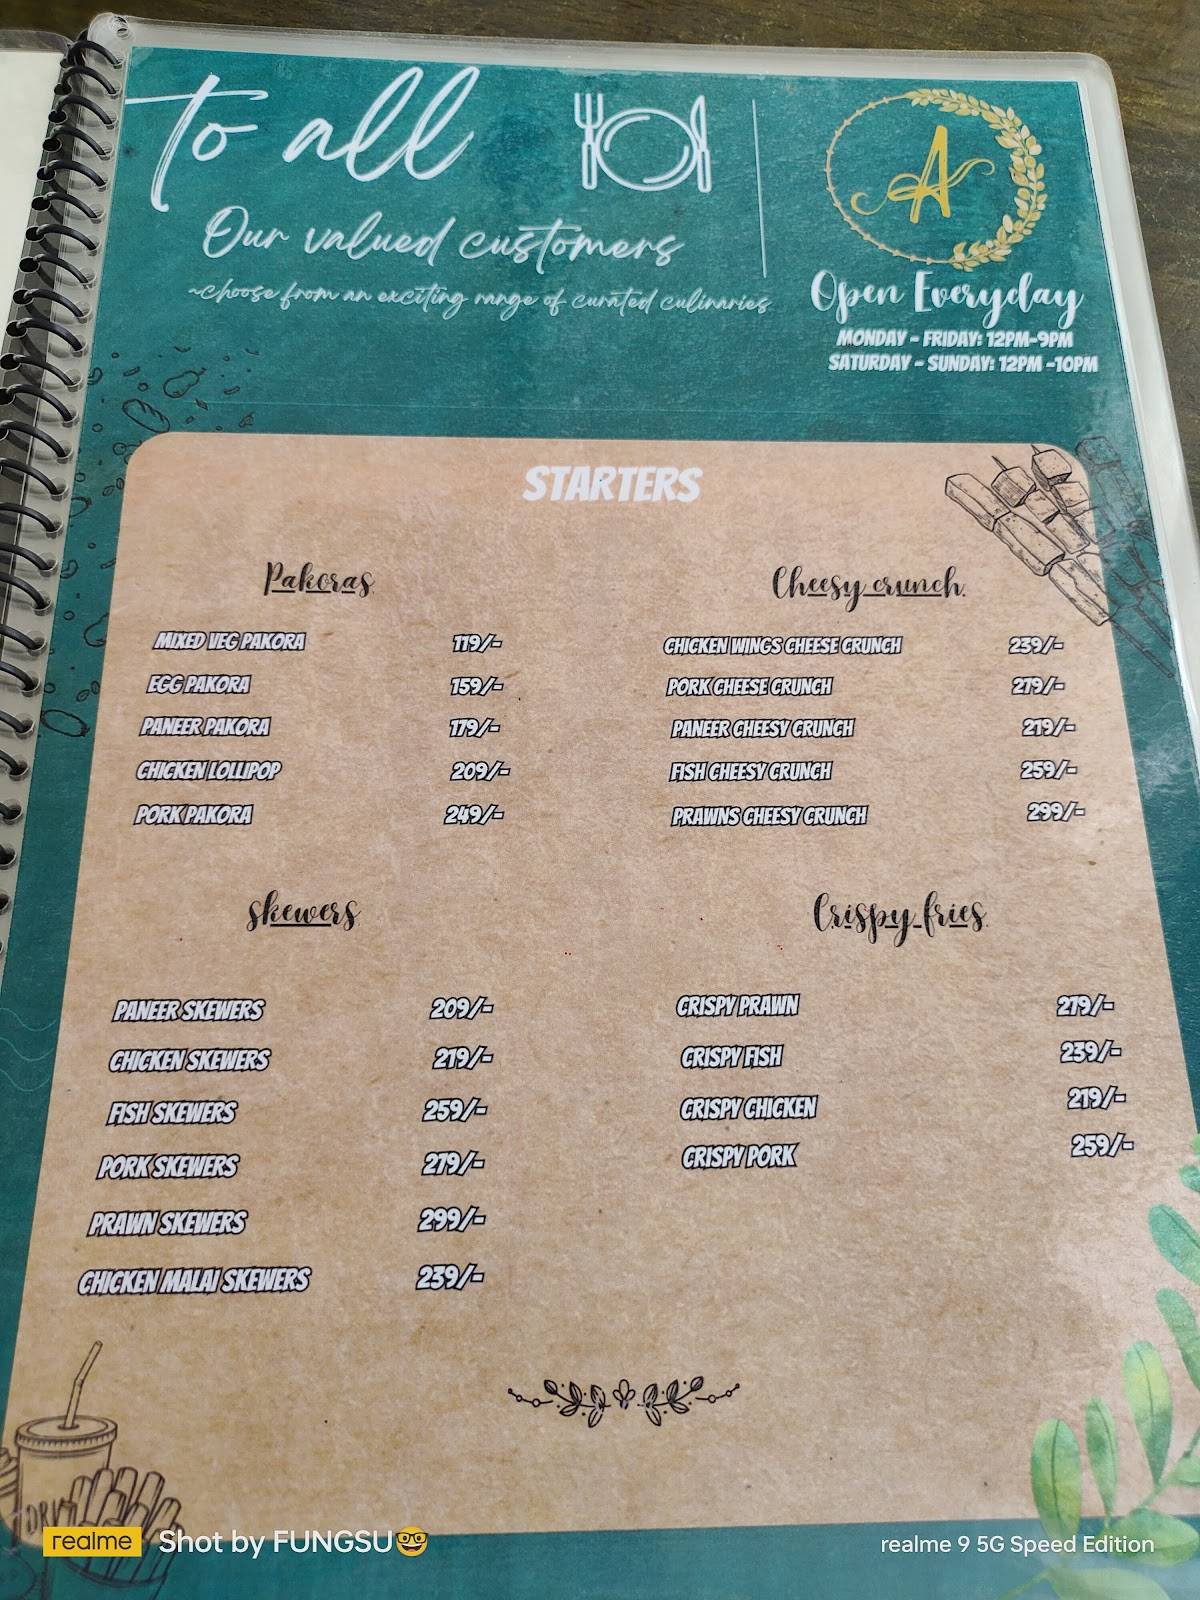 To all
Our valued customers
~choose from an exciting range of curated culinaries
A
Open Everyday
MONDAY - FRIDAY: 12PM-9PM
SATURDAY - SUNDAY: 12PM -10PM
STARTERS
Pakoras
MIXED VEG PAKORA 119/-
EGG PAKORA 159/-
PANEER PAKORA 179/-
CHICKEN LOLLIPOP 209/-
PORK PAKORA 249/-
Cheesy crunch
CHICKEN WINGS CHEESE CRUNCH 239/-
PORK CHEESE CRUNCH 279/-
PANEER CHEESY CRUNCH 219/-
FISH CHEESY CRUNCH 259/-
PRAWNS CHEESY CRUNCH 299/-
skewers
PANEER SKEWERS 209/-
CHICKEN SKEWERS 219/-
FISH SKEWERS 259/-
PORK SKEWERS 279/-
PRAWN SKEWERS 299/-
CHICKEN MALAI SKEWERS 239/-
Crispy fries
CRISPY PRAWN 279/-
CRISPY FISH 239/-
CRISPY CHICKEN 219/-
CRISPY PORK 259/-
realme Shot by FUNGSU🤓
realme 9 5G Speed Edition